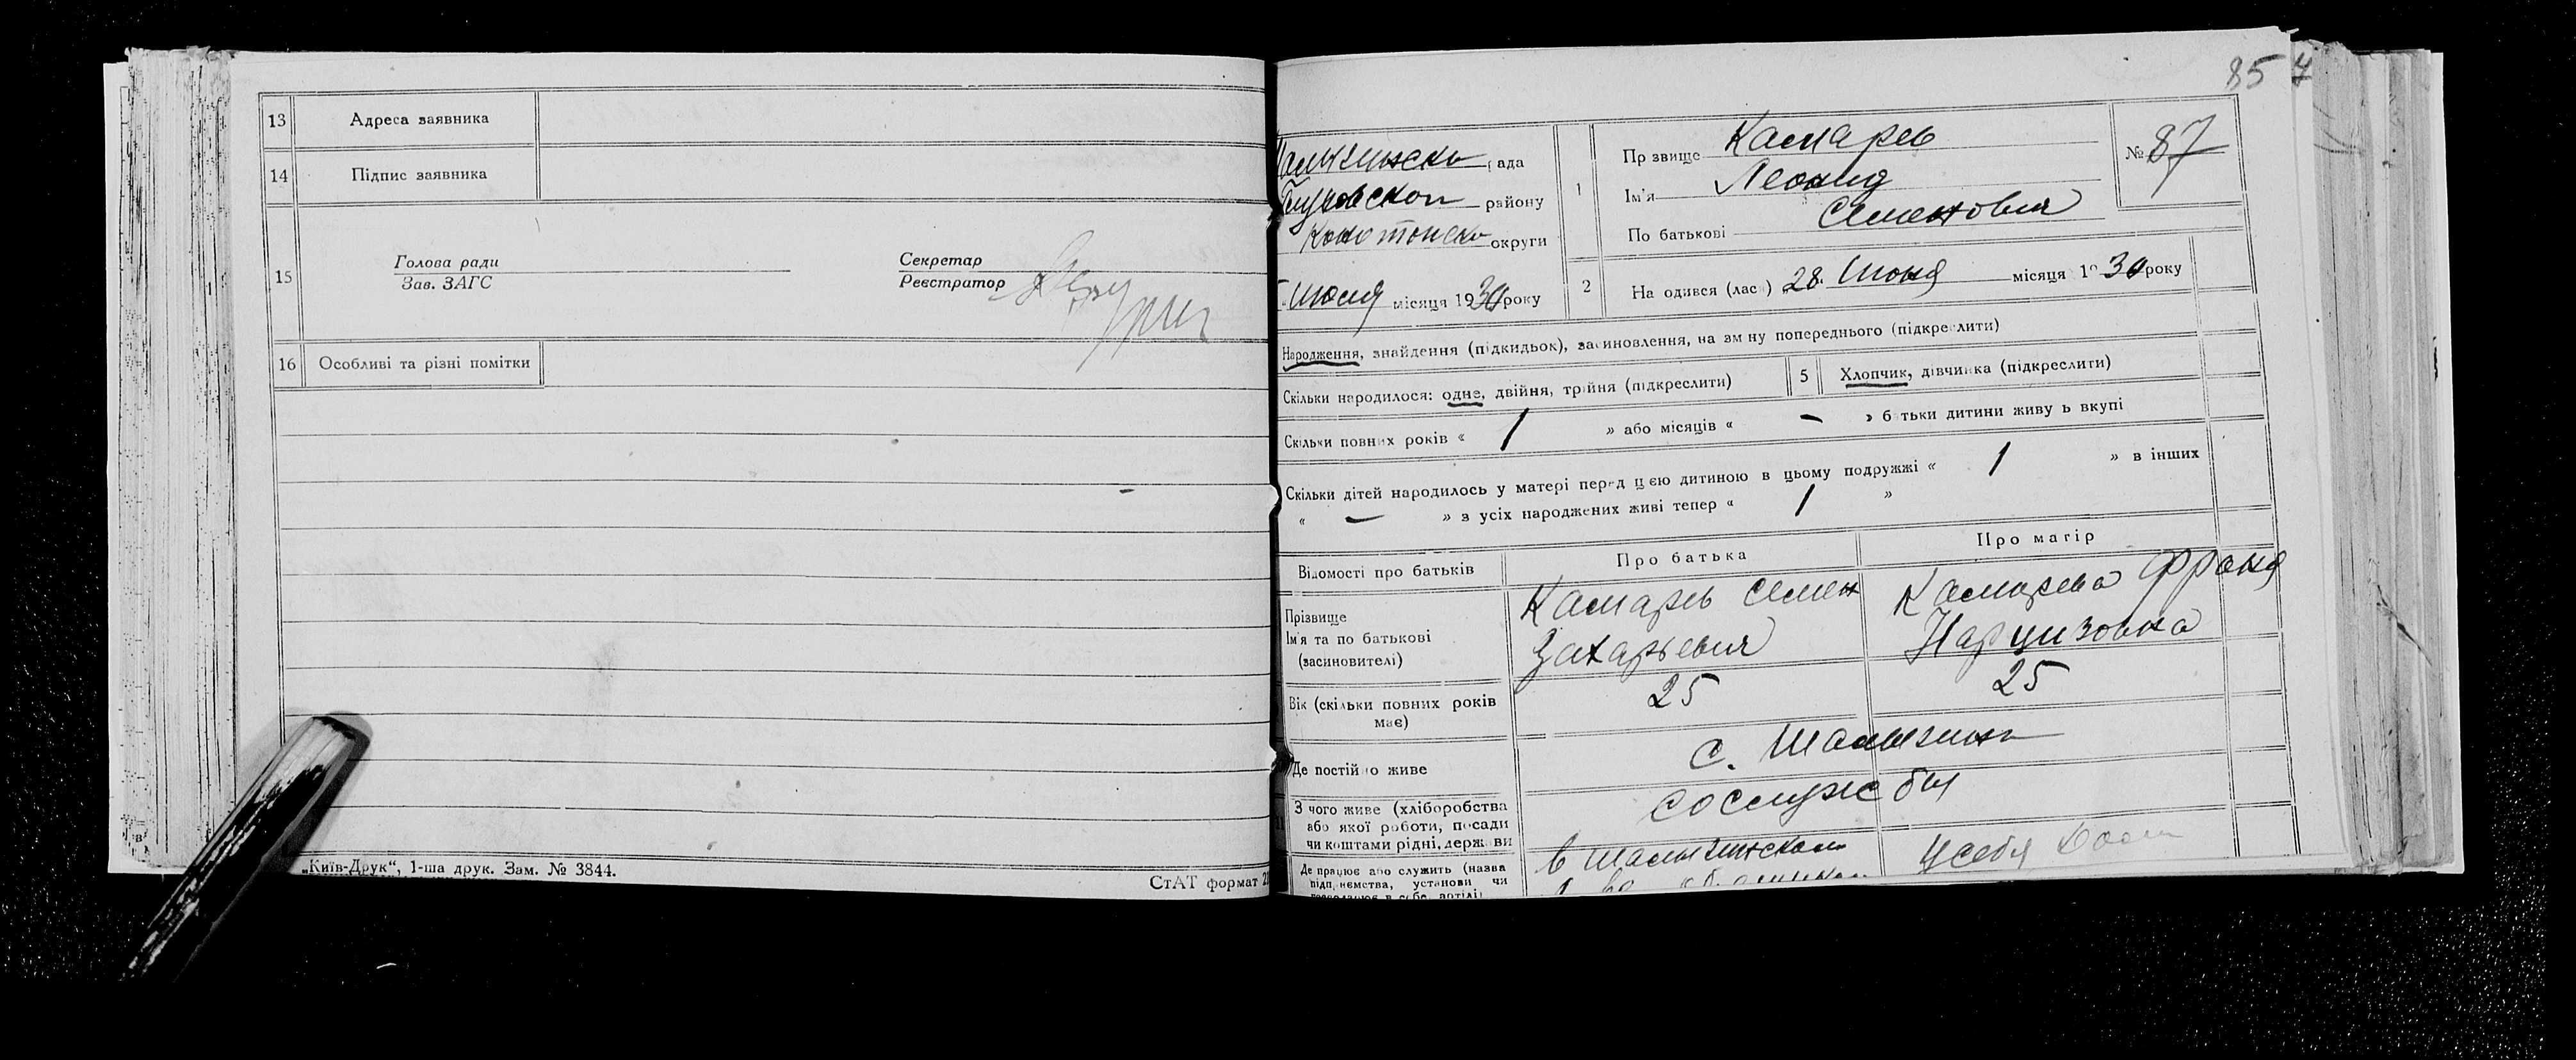 13 Адреса заявника
14 Підпис заявника
15 Голова ради
Зав. ЗАГС
Секретар
Реєстратор
16 Особливі та різні помітки
„Київ-Друк“, 1-ша друк. Зам. № 3844.
СтАТ формат
85
рада
района
Конотопско округи
июля місяця 1930 року
1 Прізвище Камарь
Ім'я Леонид
По батькові Семенович
№ 87
2 На одився (лась) 28 Июня місяця 1930 року
Народження, знайдення (підкидьок), засиновлення, на зміну попереднього (підкреслити)
Скільки народилося: одне, двійня, трійня (підкреслити)
5 Хлопчик, дівчинка (підкреслити)
Скільки повних років « 1 » або місяців « — » батьки дитини живуть вкупі
Скільки дітей народилось у матері перед цією дитиною в цьому подружжі « 1 » в інших
« — » з усіх народжених живі тепер « 1 »
Відомості про батьків
Про батька
Про матір
Прізвище
Ім'я та по батькові
(засиновителі)
Камарь Семен
Захарьевич
Камарева Франя
Нарцизовна
Вік (скільки повних років
має)
25
25
Де постійно живе
с. Шалыгино
З чого живе (хліборобства
або якої роботи, посади
чи коштами рідні, держави
со службы
Де працює або служить (назва
підприємства, установи чи
в Шалыгинском
у себя дома